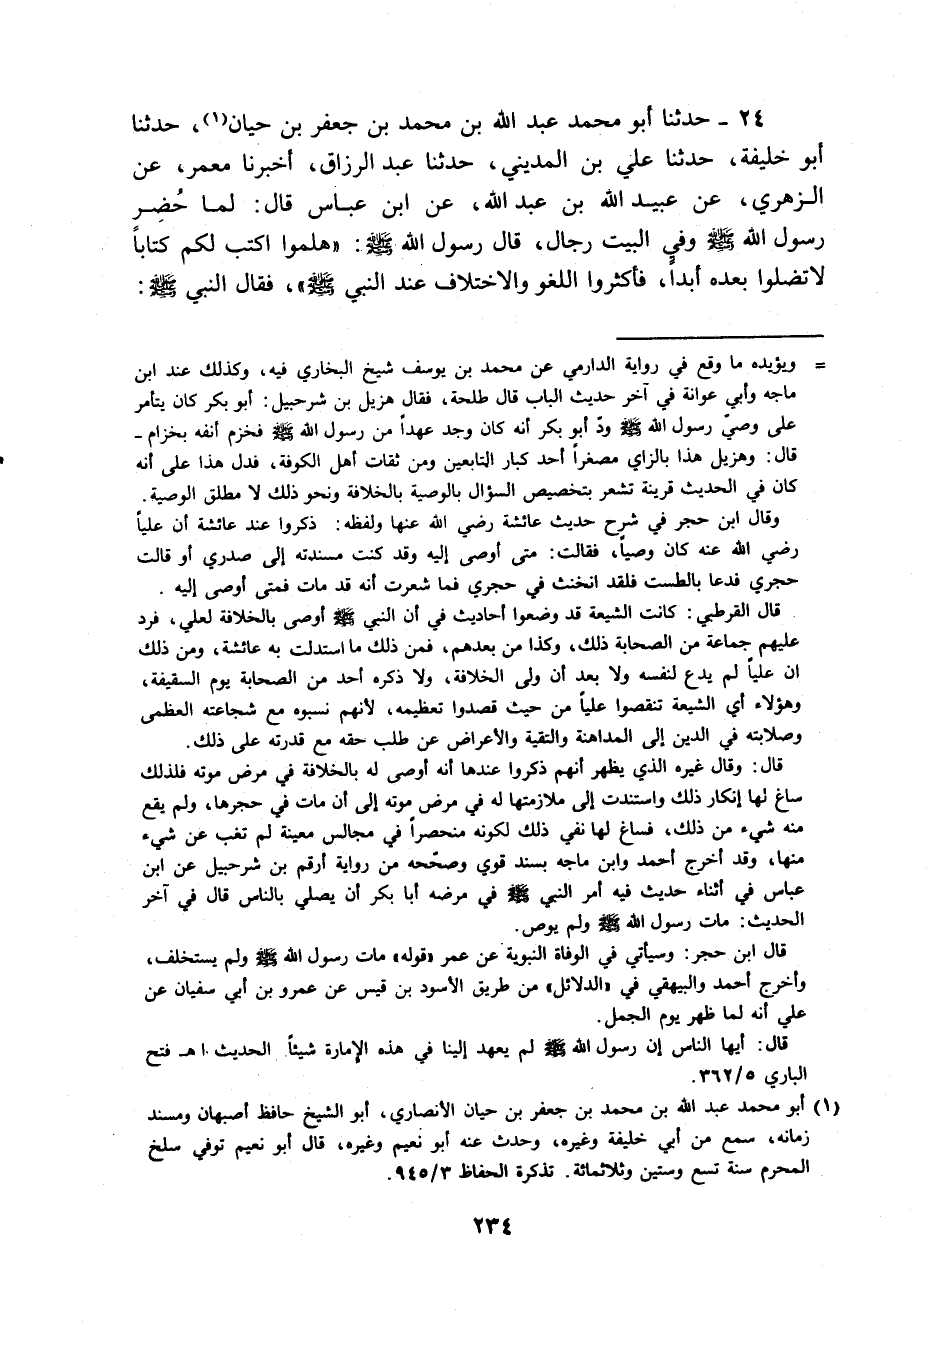 ٢٤ ـ حدثنا أبو محمد عبد الله بن محمد بن جعفر بن حيان(١)، حدثنا
أبو خليفة، حدثنا علي بن المديني، حدثنا عبد الرزاق، أخبرنا معمر، عن
الزهري، عن عبيد الله بن عبد الله، عن ابن عباس قال: لما حُضِر
رسول الله ﷺ وفي البيت رجال، قال رسول الله ﷺ: «هلموا اكتب لكم كتاباً
لاتضلوا بعده أبداً، فأكثروا اللغو والاختلاف عند النبي ﷺ»، فقال النبي ﷺ:
= ويؤيده ما وقع في رواية الدارمي عن محمد بن يوسف شيخ البخاري فيه، وكذلك عند ابن
ماجه وأبي عوانة في آخر حديث الباب قال طلحة، فقال هزيل بن شرحبيل: أبو بكر كان يتأمر
على وصيّ رسول الله ﷺ ودّ أبو بكر أنه كان وجد عهداً من رسول الله ﷺ فخزم أنفه بخزام ـ
قال: وهزيل هذا بالزاي مصغراً أحد كبار التابعين ومن ثقات أهل الكوفة، فدل هذا على أنه
كان في الحديث قرينة تشعر بتخصيص السؤال بالوصية بالخلافة ونحو ذلك لا مطلق الوصية.
وقال ابن حجر في شرح حديث عائشة رضي الله عنها ولفظه: ذكروا عند عائشة أن علياً
رضي الله عنه كان وصياً، فقالت: متى أوصى إليه وقد كنت مسندته إلى صدري أو قالت
حجري فدعا بالطست فلقد انخنث في حجري فما شعرت أنه قد مات فمتى أوصى إليه.
قال القرطبي: كانت الشيعة قد وضعوا أحاديث في أن النبي ﷺ أوصى بالخلافة لعلي، فرد
عليهم جماعة من الصحابة ذلك، وكذا من بعدهم، فمن ذلك ما استدلت به عائشة، ومن ذلك
ان علياً لم يدع لنفسه ولا بعد أن ولى الخلافة، ولا ذكره أحد من الصحابة يوم السقيفة،
وهؤلاء أي الشيعة تنقصوا علياً من حيث قصدوا تعظيمه، لأنهم نسبوه مع شجاعته العظمى
وصلابته في الدين إلى المداهنة والتقية والأعراض عن طلب حقه مع قدرته على ذلك.
قال: وقال غيره الذي يظهر أنهم ذكروا عندها أنه أوصى له بالخلافة في مرض موته فلذلك
ساغ لها إنكار ذلك واستندت إلى ملازمتها له في مرض موته إلى أن مات في حجرها، ولم يقع
منه شيء من ذلك، فساغ لها نفي ذلك لكونه منحصراً في مجالس معينة لم تغب عن شيء
منها، وقد أخرج أحمد وابن ماجه بسند قوي وصحّحه من رواية أرقم بن شرحبيل عن ابن
عباس في أثناء حديث فيه أمر النبي ﷺ في مرضه أبا بكر أن يصلي بالناس قال في آخر
الحديث: مات رسول الله ﷺ ولم يوص.
قال ابن حجر: وسيأتي في الوفاة النبوية عن عمر «قوله» مات رسول الله ﷺ ولم يستخلف،
وأخرج أحمد والبيهقي في «الدلائل» من طريق الأسود بن قيس عن عمرو بن أبي سفيان عن
علي أنه لما ظهر يوم الجمل.
قال: أيها الناس إن رسول الله ﷺ لم يعهد إلينا في هذه الإمارة شيئاً الحديث ١٠هـ فتح
الباري ٣٦٢/٥.
(١) أبو محمد عبد الله بن محمد بن جعفر بن حيان الأنصاري، أبو الشيخ حافظ أصبهان ومسند
زمانه، سمع من أبي خليفة وغيره، وحدث عنه أبو نعيم وغيره، قال أبو نعيم توفي سلخ
المحرم سنة تسع وستين وثلاثمائة. تذكرة الحفاظ ٩٤٥/٣.
٢٣٤